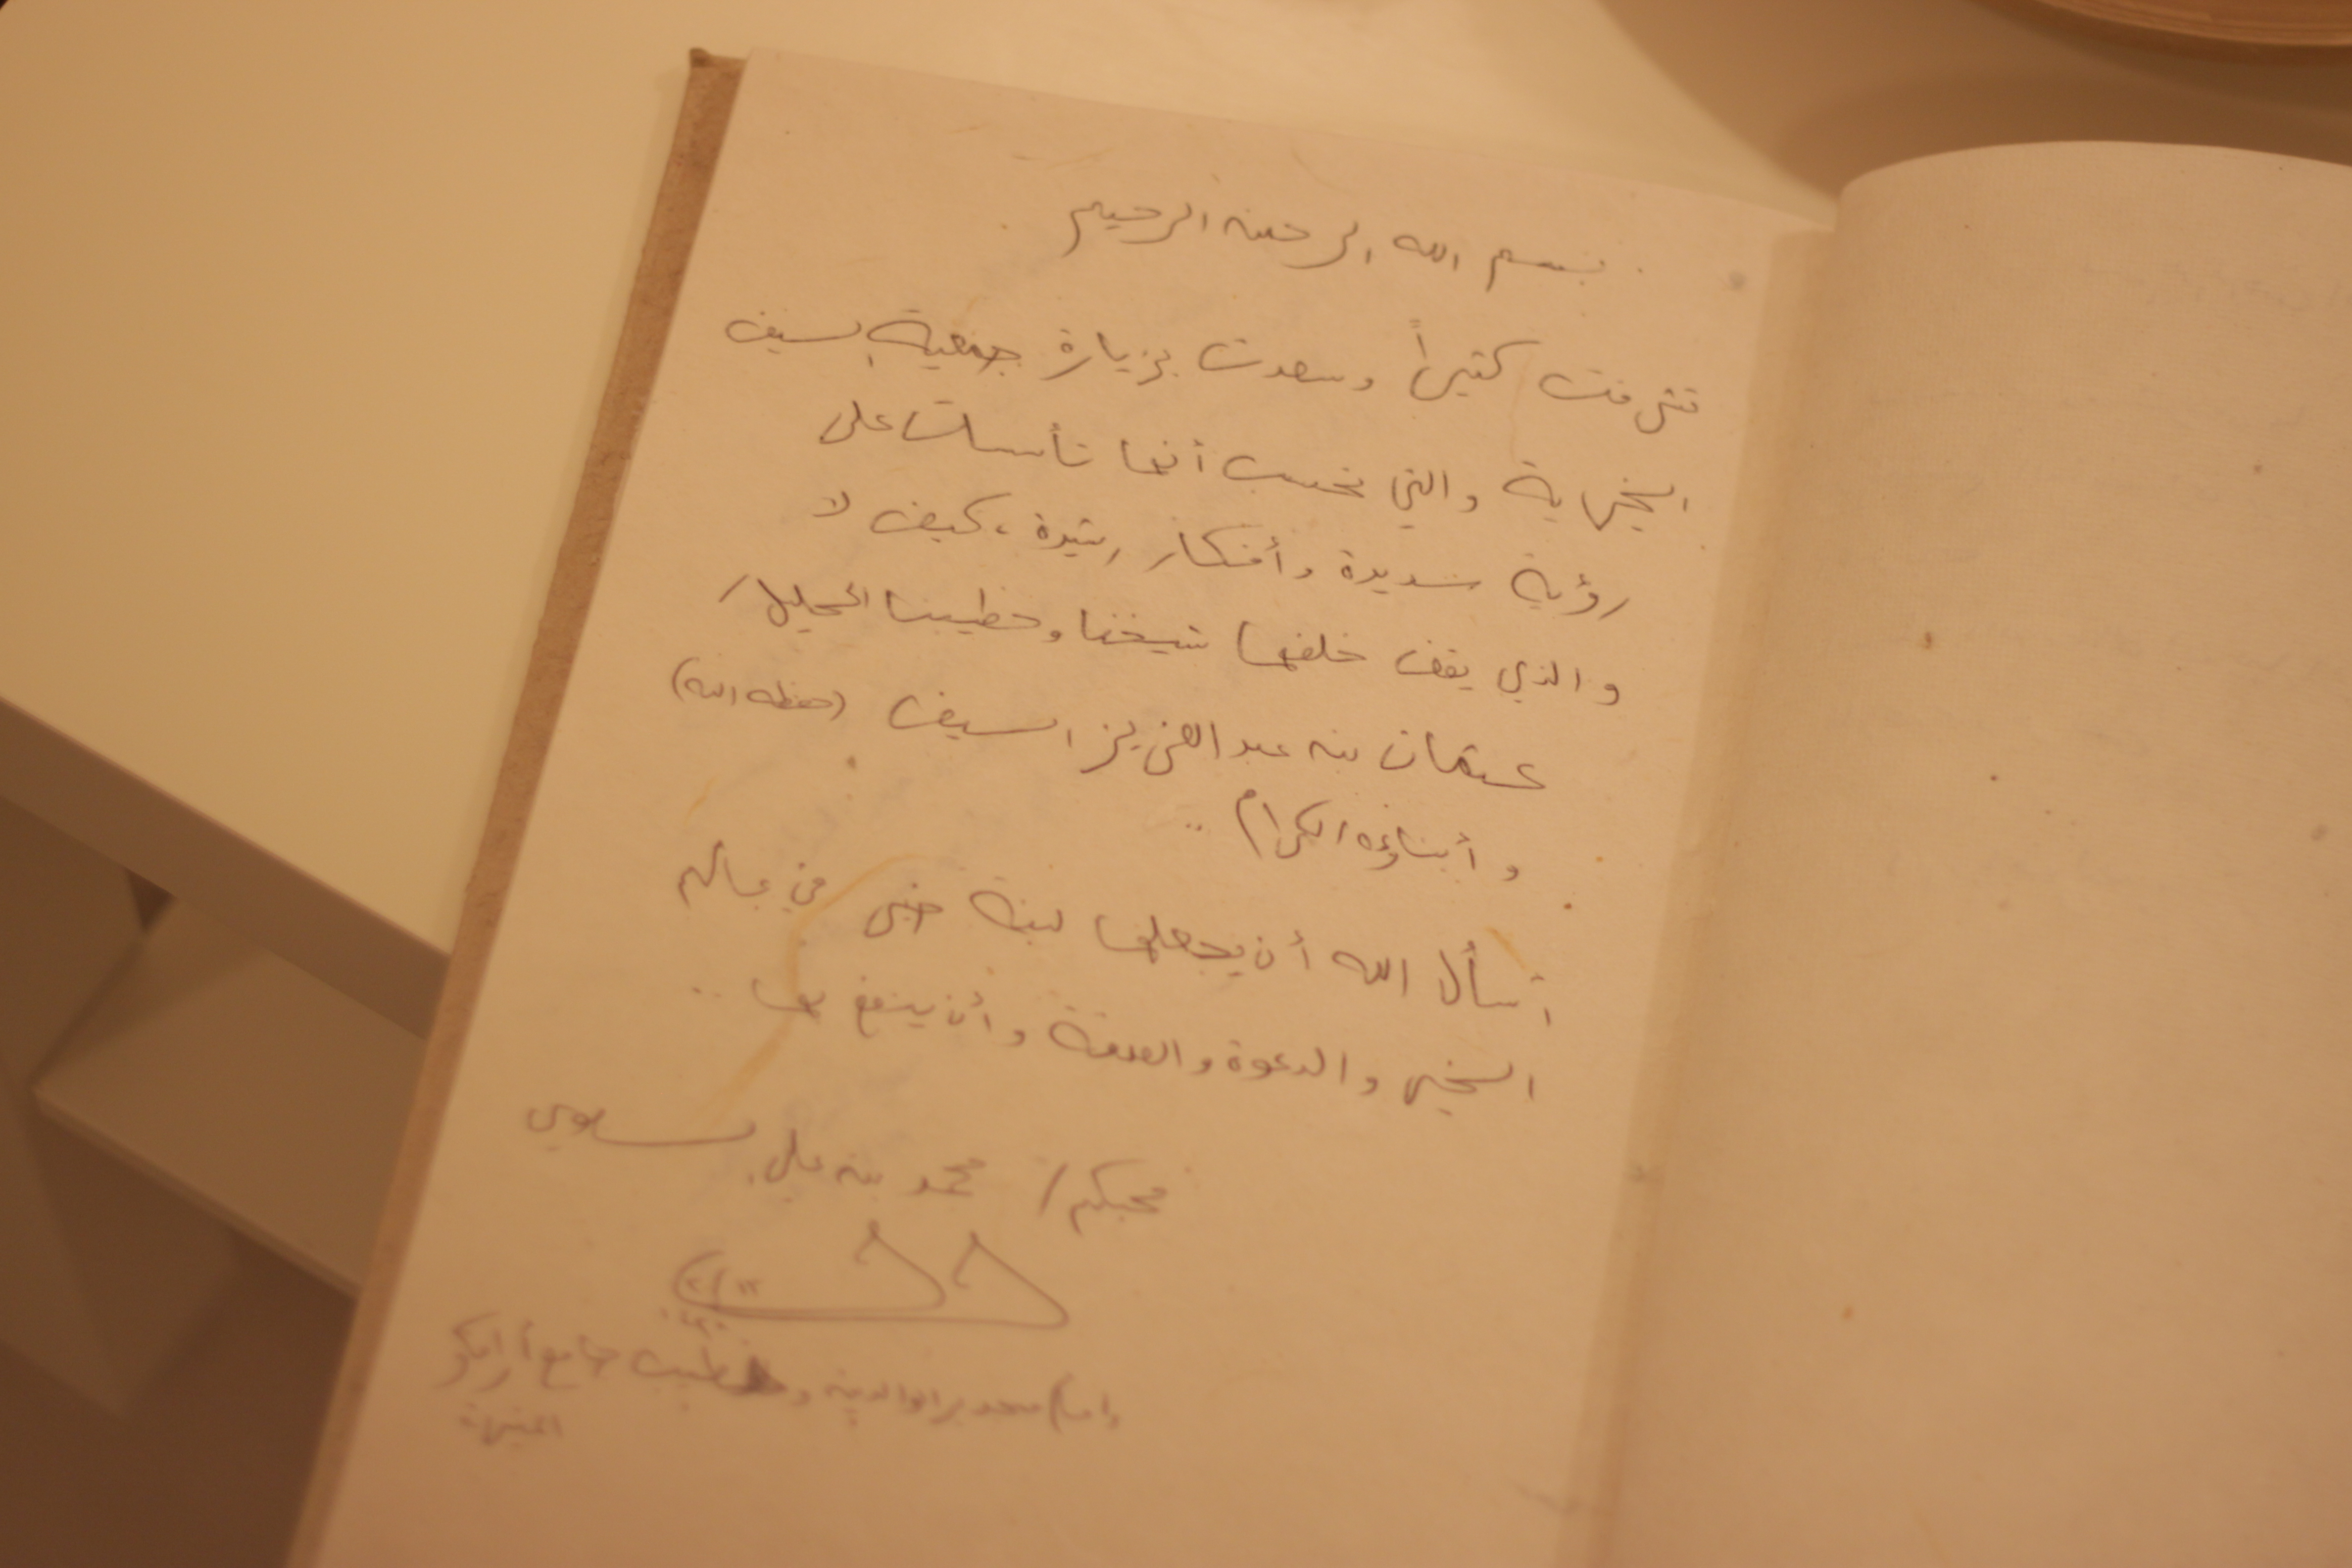 بسم الله الرحمن الرحيم
تشرفت كثيراً وسعدت بزيارة جمعية السيف
الخيرية والتي نحسب أنها تأسست على
رؤية سديدة وأفكار رشيدة، كيف لا
والذي يقف خلفها شيخنا وخطيبنا الجليل/
عثمان بن عبدالعزيز السيف (حفظه الله)
وأبناؤه الكرام ..
أسأل الله أن يجعلها لبنة خير في عالم
الخير والدعوة والصدقة وأن ينفع بها ..
محبكم/ محمد بن علي
إمام مسجد بر الوالدين وخطيب جامع أرامكو